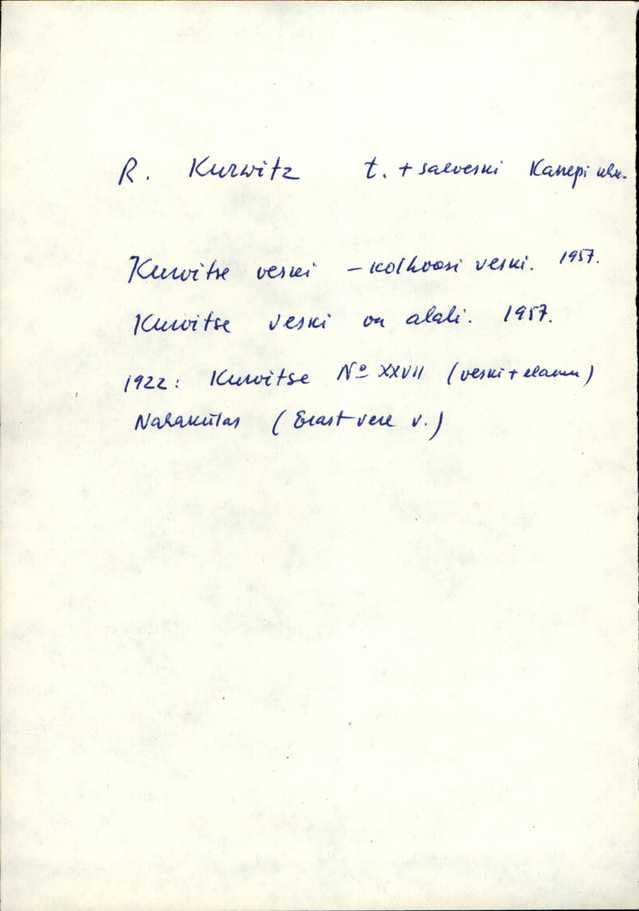 R. Kurwitz t. + saeveski Kanepi khk.
Kurvitse veski – kolhoosi veski. 1957.
Kurvitse veski on alali. 1957.
1922: Kurvitse No XXVII (veski + elamu)
Narakülas (Erastvere v.)